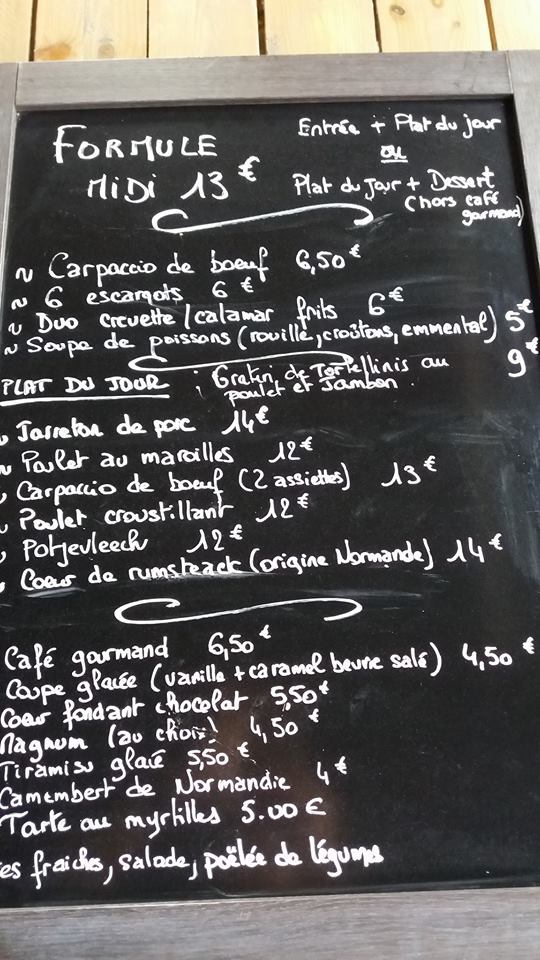 FORMULE
MIDI 13 €
Entrée + Plat du jour
ou
Plat du jour + Dessert
(hors café
gourmand)
~ Carpaccio de boeuf 6,50 €
~ 6 escargots 6 €
~ Duo crevette / calamar frits 6 €
~ Soupe de poissons (rouille, croûtons, emmental) 5 €
PLAT DU JOUR : Gratin de Tortellinis au 9 €
poulet et Jambon.
~ Jarreton de porc 14 €
~ Poulet au maroilles 12 €
~ Carpaccio de boeuf (2 assiettes) 13 €
~ Poulet croustillant 12 €
~ Potjevleesch 12 €
~ Coeur de rumsteack (origine Normande) 14 €
Café gourmand 6,50 €
Coupe glacée (vanille + caramel beurre salé) 4,50 €
Coeur fondant chocolat 5,50 €
Magnum (au choix) 4,50 €
Tiramisu glacé 5,50 €
Camembert de Normandie 4 €
Tarte au myrtilles 5.00 €
es fraiches, salade, poêlée de légumes